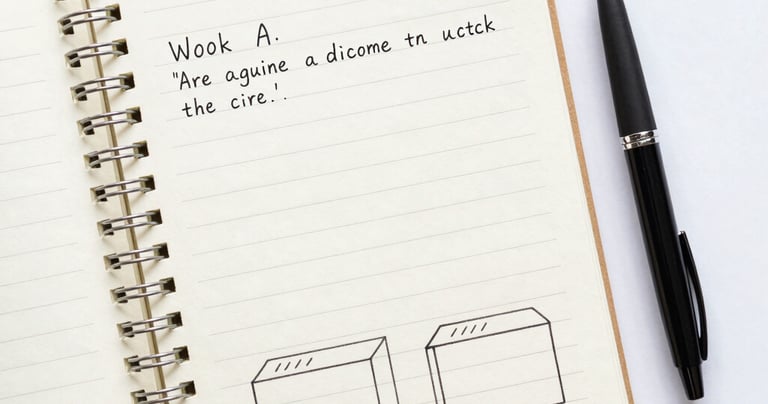 Wook A.
"Are aguine a dicome tn uctck
the cire.'.